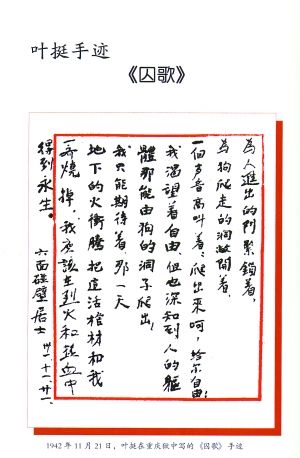 叶挺手迹
《囚歌》
為人進出的門緊鎖着，
為狗爬走的洞敞開着，
一個声音高叫着：爬出來呵，给尔自由！
我渴望着自由，但也深知到人的軀
體那能由狗的洞子爬出！
我只能期待着，那一天
地下的火衝騰，把這活棺材和我
一齊燒掉，我應該在烈火和熱血中
得到永生。
六面碰壁居士
卅一.十一.廿一.
1942年11月21日，叶挺在重庆狱中写的《囚歌》手迹